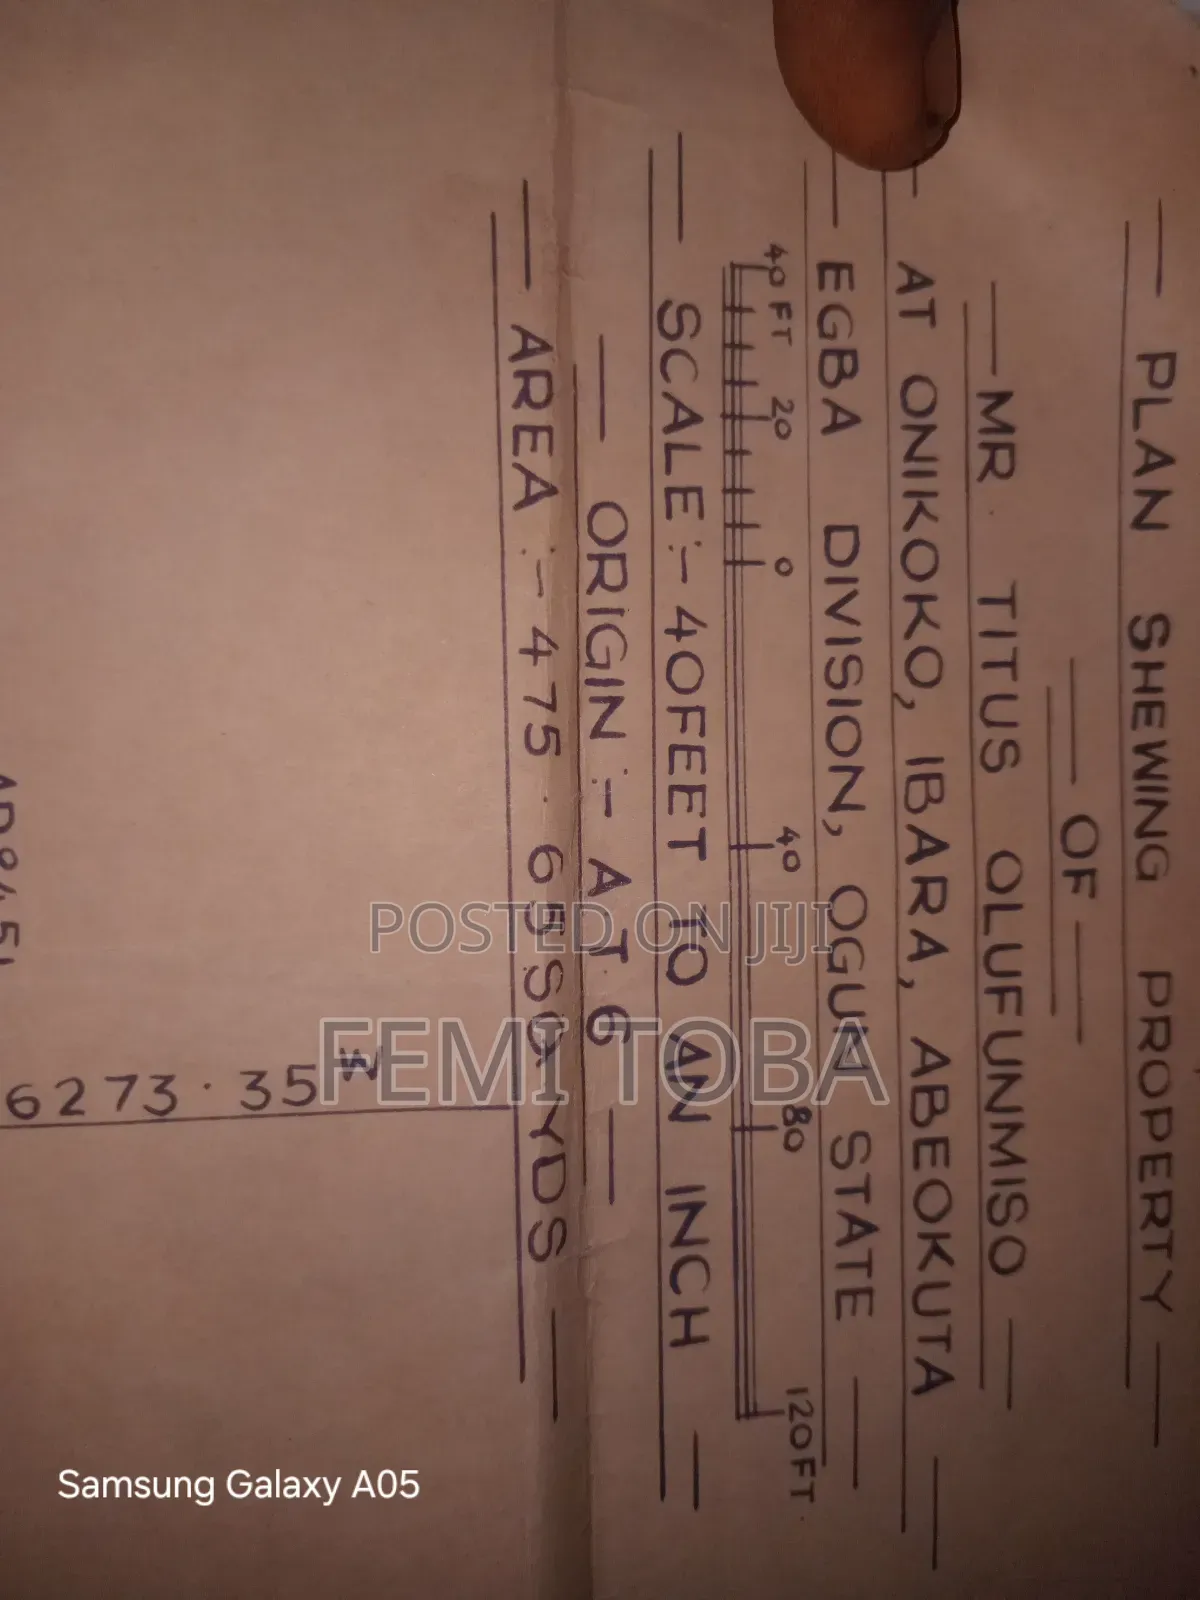 — PLAN SHEWING PROPERTY —
— OF —
— MR. TITUS OLUFUNMISO —
— AT ONIKOKO, IBARA, ABEOKUTA —
— EGBA DIVISION, OGUN STATE —
40FT 20 0 40 80 120FT.
— SCALE:- 40FEET TO AN INCH —
— ORIGIN:- A.T.6 —
— AREA:- 475.65SQ.YDS —
6273.35
POSTED ON JIJI
FEMI TOBA
Samsung Galaxy A05